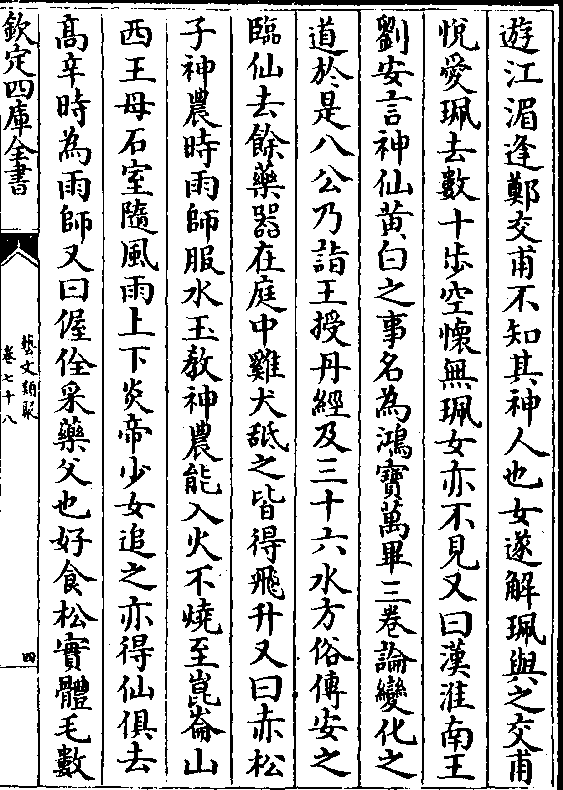 遊江湄逢鄭交甫不知其神人也女遂解珮與之交甫
悅愛珮去數十步空懷無珮女亦不見又曰漢淮南王
劉安言神仙黄白之事名為鴻寶萬畢三卷論變化之
道於是八公乃詣王授丹經及三十六水方俗傳安之
臨仙去餘藥器在庭中雞犬舐之皆得飛升又曰赤松
子神農時雨師服水玉教神農能入火不燒至崑崙山
西王母石室隨風雨上下炎帝少女追之亦得仙俱去
髙辛時為雨師又曰偓佺采藥父也好食松實體毛數
欽定四庫全書
藝文類聚
卷七十八
四